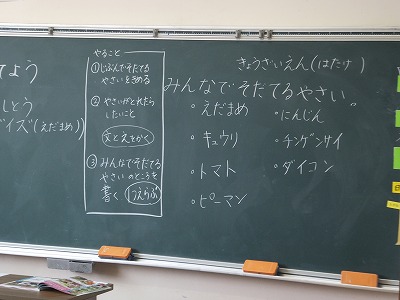 てよう
しとう
イズ(えだまめ))
やること
①じぶんでそだてる
やさいをきめる
②やさいがとれたら
したいこと
文とえをかく
③みんなでそだてる
やさいのところを
書く 1つえらぶ
きょうざいえん(はたけ)
みんなでそだてるやさい。
・えだまめ
・キュウリ
・トマト
・ピーマン
・にんじん
・チンゲンサイ
・ダイコン